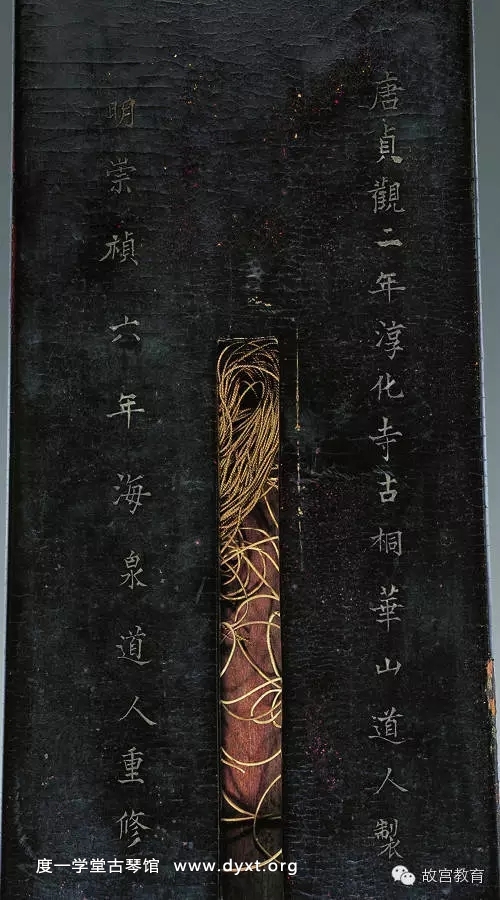 唐貞觀二年淳化寺古桐華山道人製
明崇禎六年海泉道人重修
度一学堂古琴馆 www.dyxt.org
故宫教育